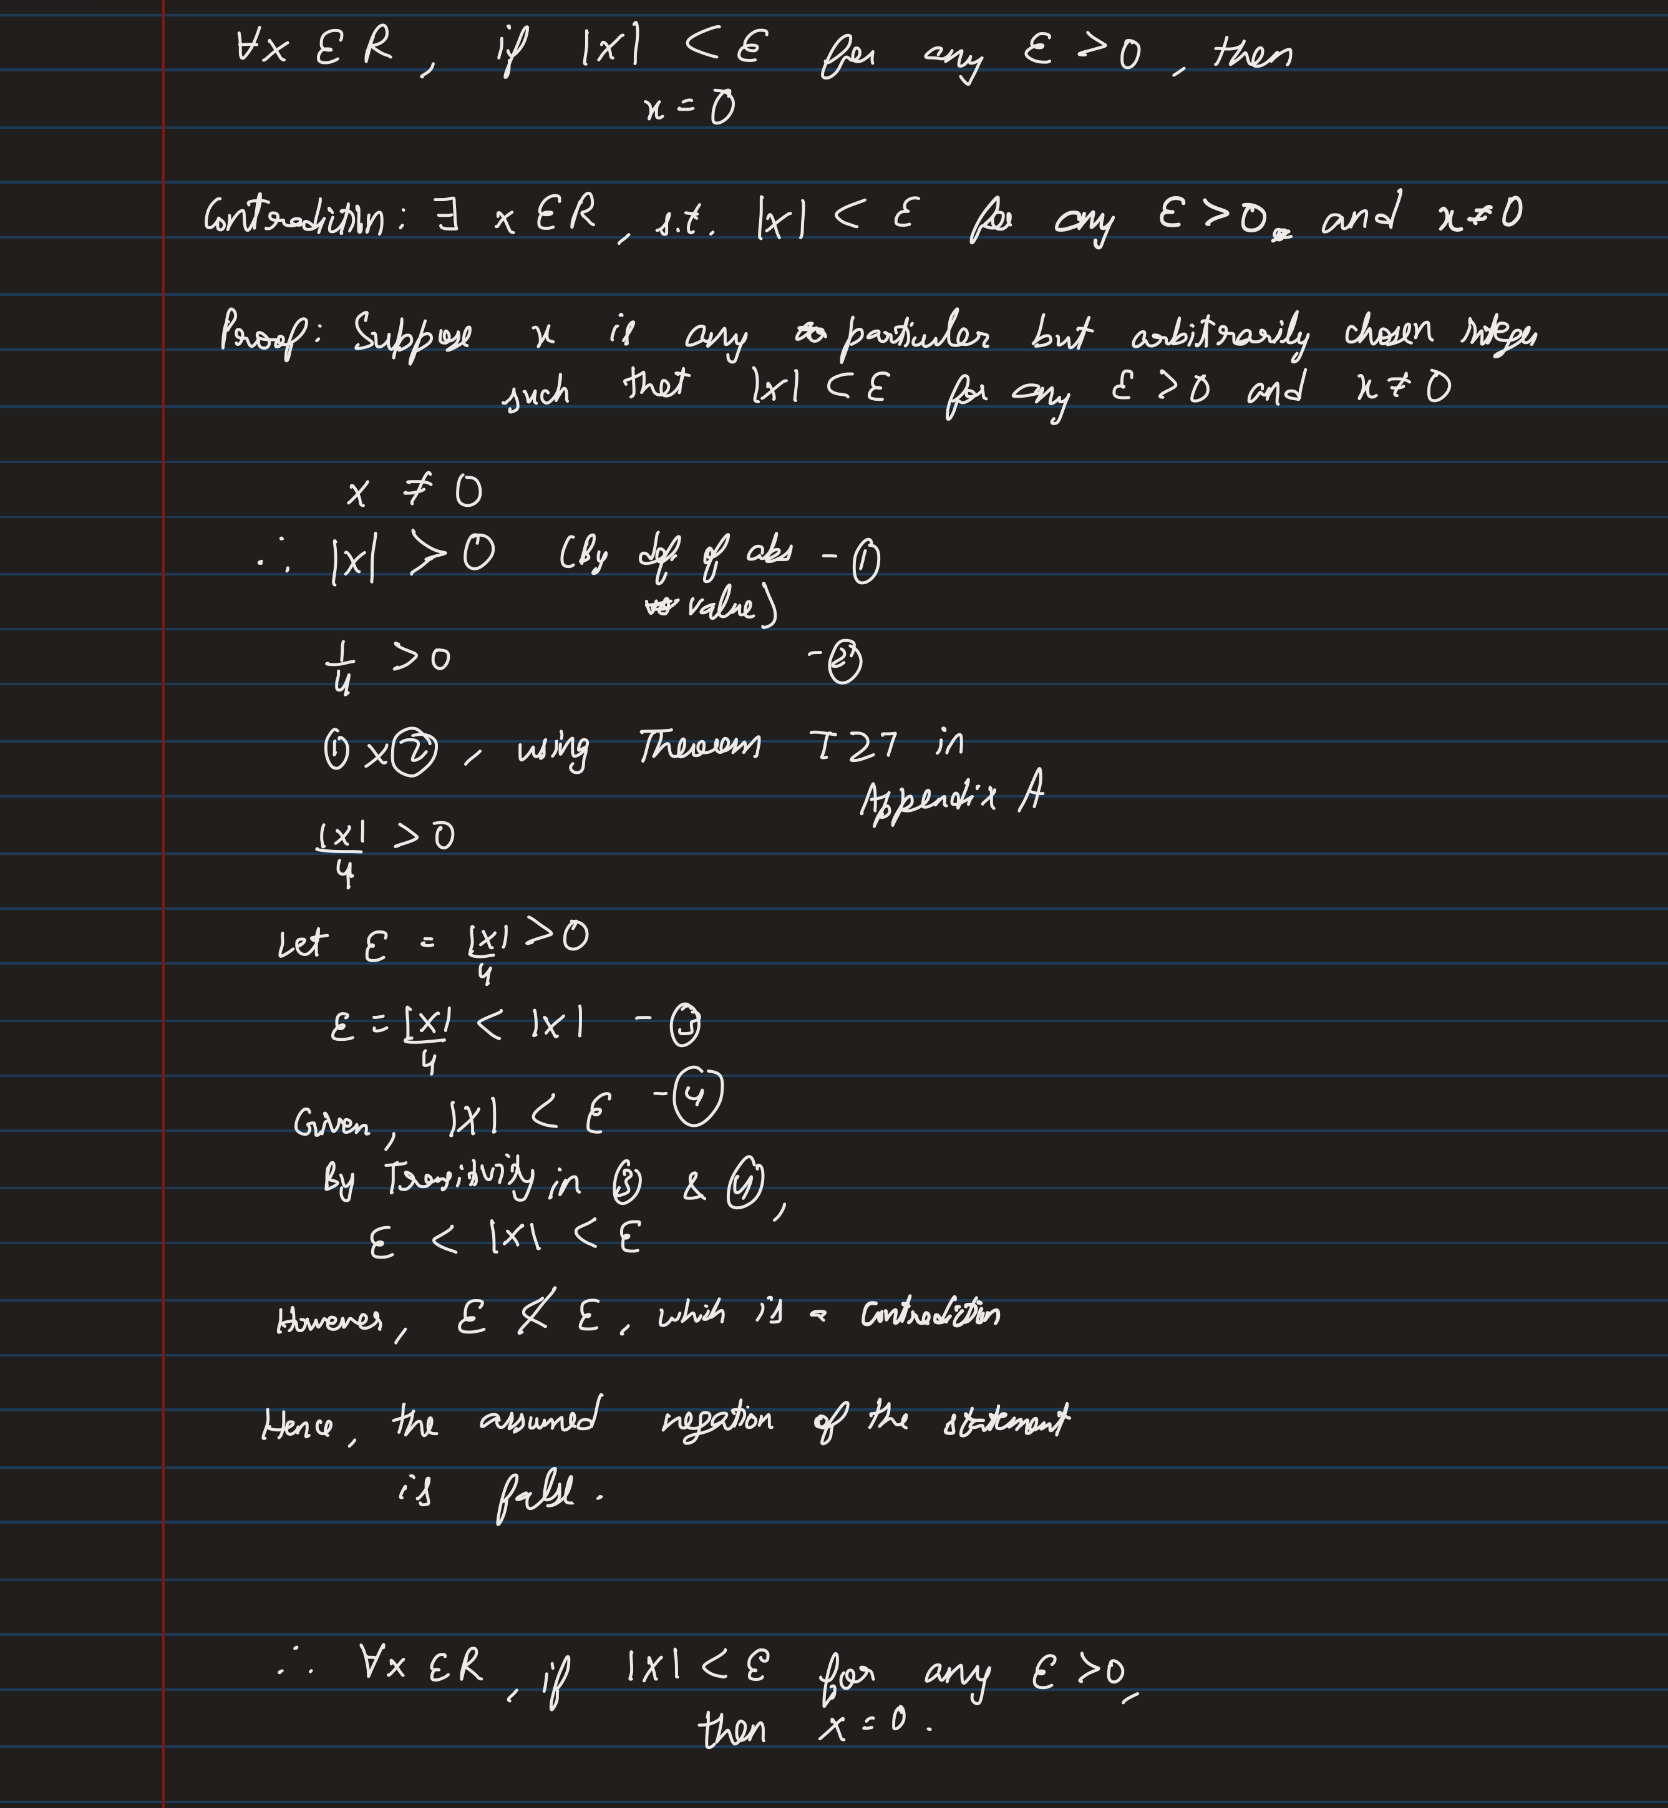 ∀x ε R, if |x| < ε for any ε > 0, then
x = 0
Contradiction: ∃ x ε R, s.t. |x| < ε for any ε > 0 and x ≠ 0
Proof: Suppose x is any particular but arbitrarily chosen integer
such that |x| < ε for any ε > 0 and x ≠ 0
x ≠ 0
∴ |x| > 0 (By def of abs - ①
value)
1/4 > 0 - ②
① x ②, using Theorem T 27 in
Appendix A
|x|/4 > 0
Let ε = |x|/4 > 0
ε = |x|/4 < |x| - ③
Given, |x| < ε - ④
By Transitivity in ③ & ④,
ε < |x| < ε
However, ε ≮ ε, which is a contradiction
Hence, the assumed negation of the statement
is false.
∴ ∀x ε R, if |x| < ε for any ε > 0,
then x = 0.